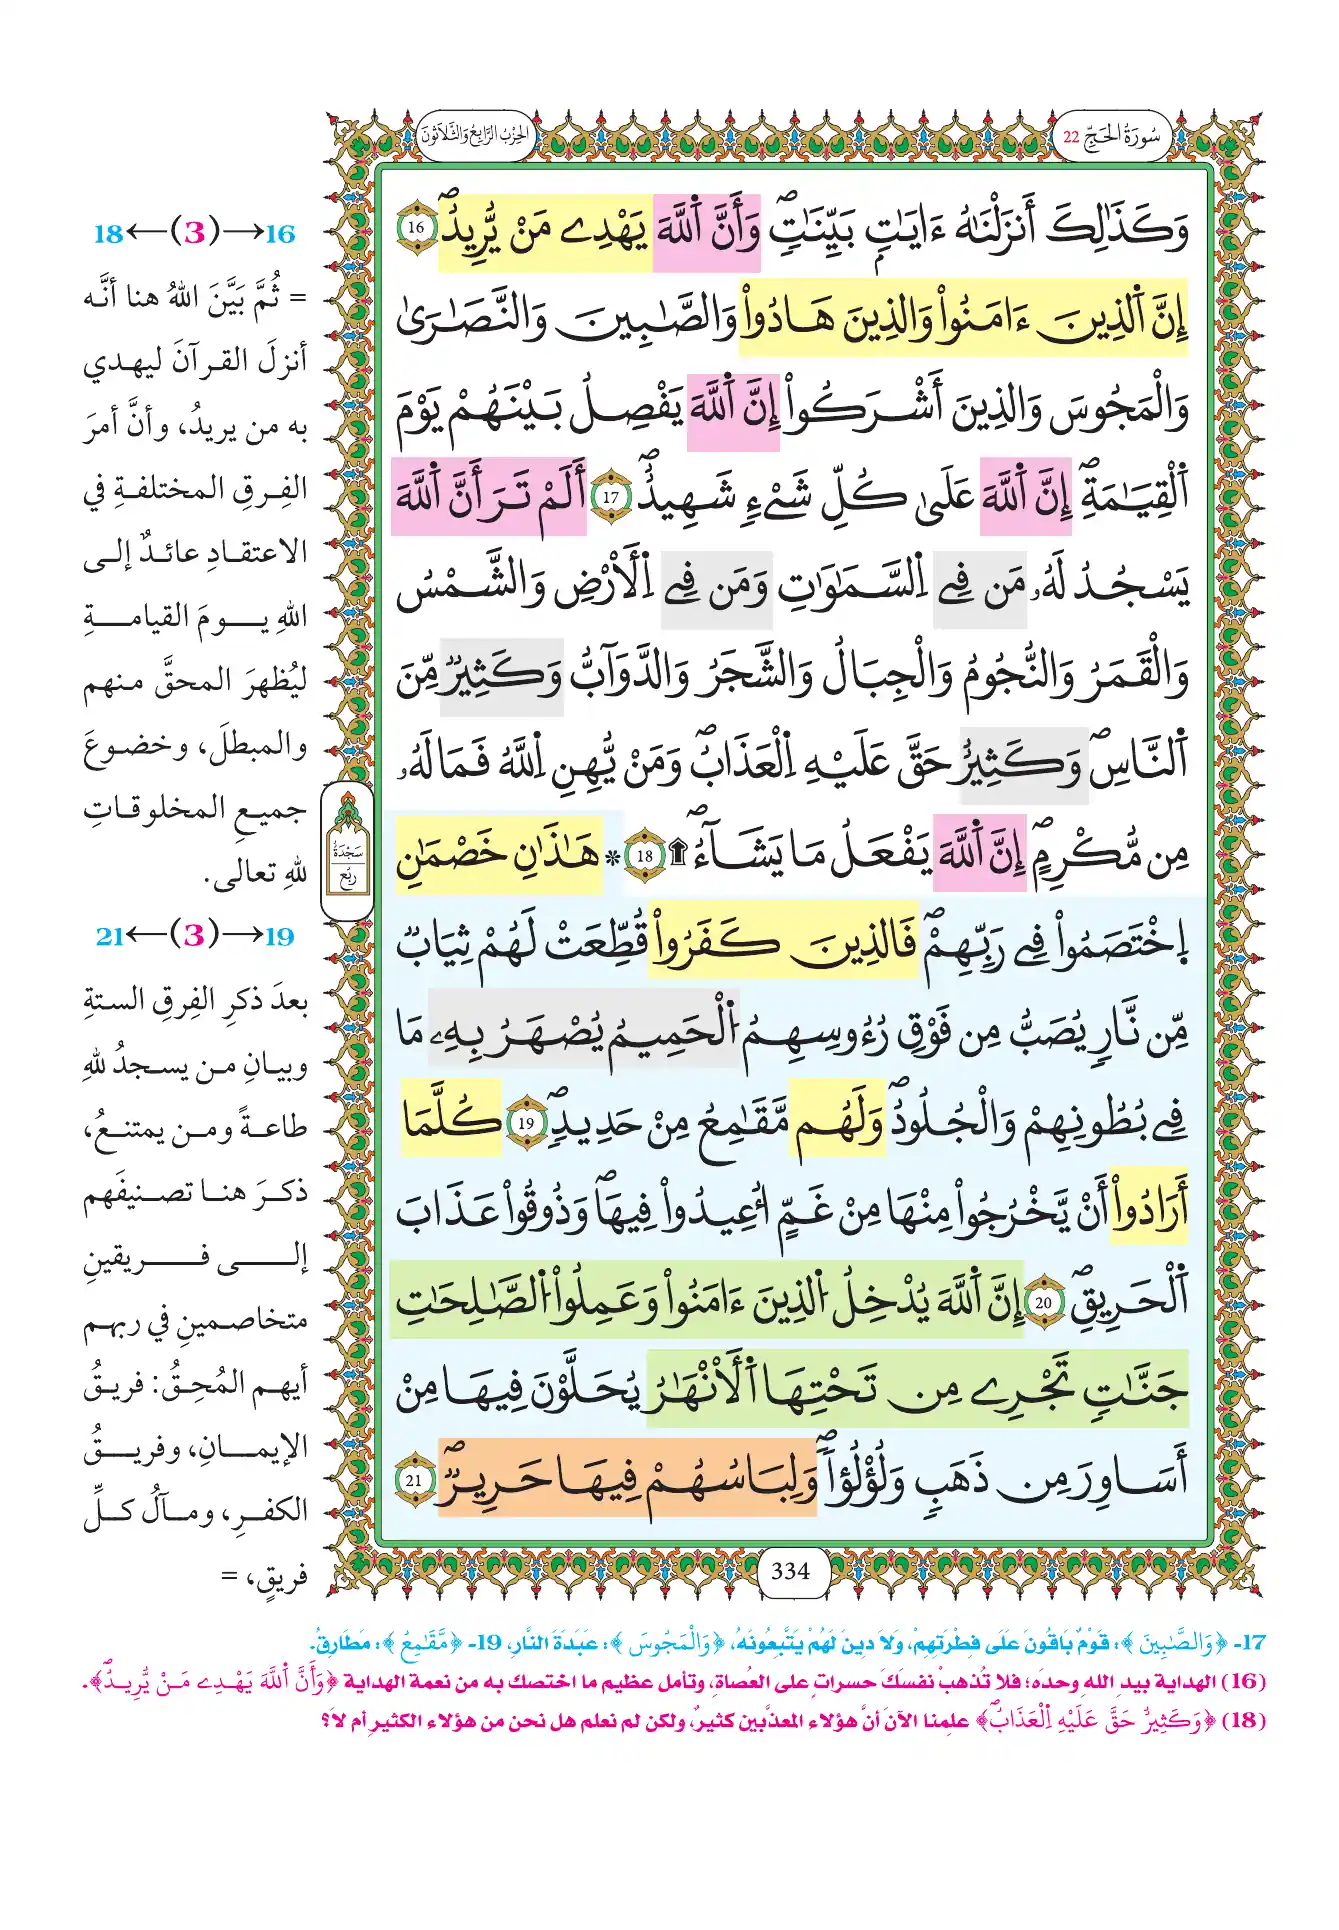 سُورَةُ الحَجِّ 22
الحِزْبُ الرَّابِعُ وَالثَّلَاثُونَ
وَكَذَٰلِكَ أَنزَلْنَٰهُ ءَايَٰتِۭ بَيِّنَٰتٖ وَأَنَّ اَ۬للَّهَ يَهْدِے مَنْ يُّرِيدُۖ 16
إِنَّ اَ۬لذِينَ ءَامَنُواْ وَالذِينَ هَادُواْ وَالصَّٰبِينَ وَالنَّصَٰرَىٰ
وَالْمَجُوسَ وَالذِينَ أَشْرَكُواْ إِنَّ اَ۬للَّهَ يَفْصِلُ بَيْنَهُمْ يَوْمَ
اَ۬لْقِيَٰمَةِۖ إِنَّ اَ۬للَّهَ عَلَىٰ كُلِّ شَےْءٖ شَهِيدٌۖ 17 أَلَمْ تَرَ أَنَّ اَ۬للَّهَ
يَسْجُدُ لَهُۥ مَن فِے اِ۬لسَّمَٰوَٰتِ وَمَن فِے اِ۬لْأَرْضِ وَالشَّمْسُ
وَالْقَمَرُ وَالنُّجُومُ وَالْجِبَالُ وَالشَّجَرُ وَالدَّوَآبُّ وَكَثِيرٞ مِّنَ
اَ۬لنَّاسِۖ وَكَثِيرٌ حَقَّ عَلَيْهِ اِ۬لْعَذَابُۖ وَمَنْ يُّهِنِ اِ۬للَّهُ فَمَا لَهُۥ
مِن مُّكْرِمٍۖ إِنَّ اَ۬للَّهَ يَفْعَلُ مَا يَشَآءُۖ ۩ 18 * هَٰذَٰنِ خَصْمَٰنِ
اِ۪خْتَصَمُواْ فِے رَبِّهِمْۖ فَالذِينَ كَفَرُواْ قُطِّعَتْ لَهُمْ ثِيَابٞ
مِّن نَّارٖ يُصَبُّ مِن فَوْقِ رُءُوسِهِمُ اُ۬لْحَمِيمُ يُصْهَرُ بِهِۦ مَا
فِے بُطُونِهِمْ وَالْجُلُودُۖ وَلَهُم مَّقَٰمِعُ مِنْ حَدِيدٖۖ 19 كُلَّمَا
أَرَادُواْ أَنْ يَّخْرُجُواْ مِنْهَا مِنْ غَمٍّ ا۟عِيدُواْ فِيهَاۖ وَذُوقُواْ عَذَابَ
اَ۬لْحَرِيقِۖ 20 إِنَّ اَ۬للَّهَ يُدْخِلُ اُ۬لذِينَ ءَامَنُواْ وَعَمِلُواْ اُ۬لصَّٰلِحَٰتِ
جَنَّٰتٖ تَجْرِے مِن تَحْتِهَا اَ۬لْأَنْهَٰرُ يُحَلَّوْنَ فِيهَا مِنْ
أَسَاوِرَ مِن ذَهَبٖ وَلُؤْلُؤاٗۖ وَلِبَاسُهُمْ فِيهَا حَرِيرٞۖ 21
سَجْدَةٌ
رُبُع
16←(3)→18
= ثُمَّ بَيَّنَ اللهُ هنا أنَّه
أنزلَ القرآنَ ليهدي
به من يريدُ، وأنَّ أمرَ
الفِرقِ المختلفةِ في
الاعتقادِ عائدٌ إلى
اللهِ يومَ القيامةِ
ليُظهرَ المحقَّ منهم
والمبطلَ، وخضوعَ
جميعِ المخلوقاتِ
للهِ تعالى.
19←(3)→21
بعدَ ذكرِ الفِرقِ الستةِ
وبيانِ من يسجدُ للهِ
طاعةً ومن يمتنعُ،
ذكرَ هنا تصنيفَهم
إلى فريقينِ
متخاصمينِ في ربهم
أيهم المُحِقُّ: فريقُ
الإيمانِ، وفريقُ
الكفرِ، ومآلُ كلِّ
فريقٍ، =
334
17- ﴿وَالصَّٰبِينَ﴾: قَوْمٌ بَاقُونَ عَلَى فِطْرَتِهِمْ، وَلاَ دِينَ لَهُمْ يَتَّبِعُونَهُ، ﴿وَالْمَجُوسَ﴾: عَبَدَةَ النَّارِ، 19- ﴿مَّقَٰمِعُ﴾: مَطَارِقُ.
(16) الهداية بيدِ اللهِ وحدَه؛ فلا تُذهبْ نفسَكَ حسراتٍ على العُصاةِ، وتأمل عظيم ما اختصك به من نعمة الهداية ﴿وَأَنَّ اَ۬للَّهَ يَهْدِے مَنْ يُّرِيدُۖ﴾.
(18) ﴿وَكَثِيرٌ حَقَّ عَلَيْهِ اِ۬لْعَذَابُۖ﴾ علِمنا الآنَ أنَّ هؤلاء المعذَّبين كثيرٌ، ولكن لم نعلم هل نحن من هؤلاء الكثيرِ أم لا؟